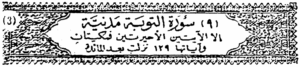 (٩) سورة التوبة مدنية
إلا الآيتين الأخيرتين فمكيتان
وآياتها ١٢٩ نزلت بعد المائدة
(3)